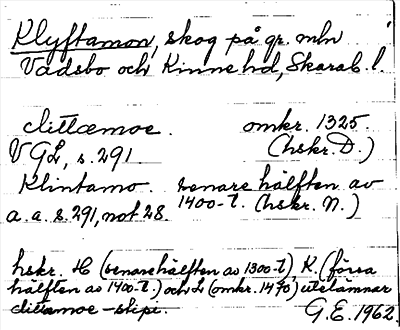 Klyftamon, skog på gr. mln
Vadsbo och Kinne hd, Skarab. l.
clittæmoe. omkr. 1325.
VGL, s. 291. (hskr. D.)
Klintamo. senare hälften av
a. a. s. 291, not 28. 1400-t. (hskr. N.)
hskr. H (senare hälften av 1300-t.) K (förra
hälften av 1400-t.) och L (omkr. 1470) utelämnar
clittæmoe - skipi. G.E. 1962.